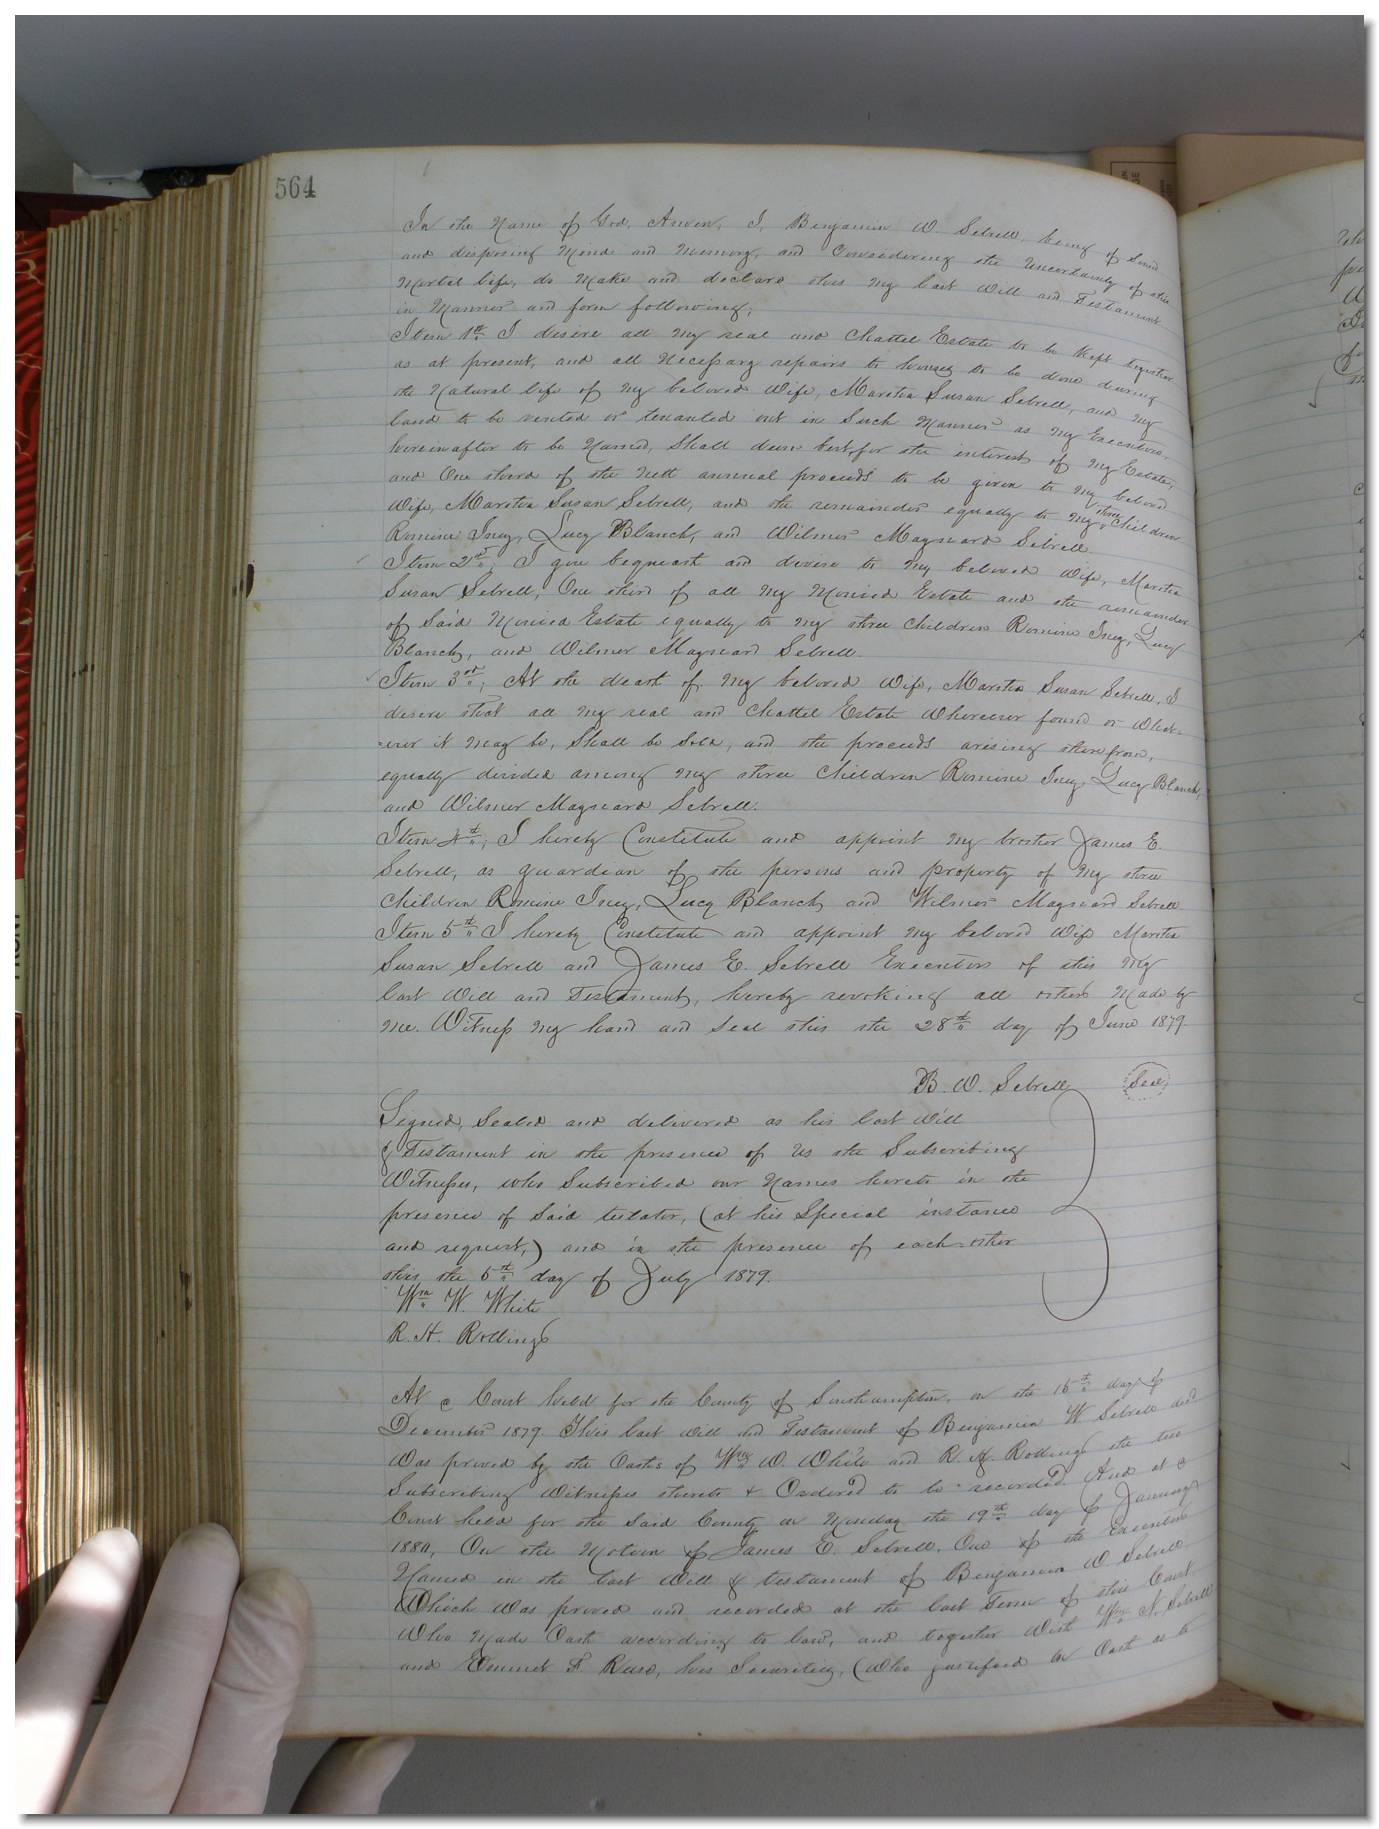 564
In the Name of God, Amen, I, Benjamin W. Sebrell, being of sound
and disposing Mind and Memory, and Considering the Uncertainty of this
Mortal life, do Make and declare this my last Will and Testament
in Manner and form following;
Item 1st. I desire all my real and Chattel Estate to be Kept together
as at present, and all Necessary repairs to houses to be done during
the Natural life of my beloved Wife, Martha Susan Sebrell, and my
land to be rented or tenanted out in Such Manner as my Executors,
hereinafter to be Named, Shall deem best, for the interest of my Estate,
and One third of the nett annual proceeds to be given to my beloved
Wife, Martha Susan Sebrell, and the remainder equally to my three Children
Romine Incy, Lucy Blanch, and Wilmer Maynard Sebrell.
Item 2nd; I give bequeath and devise to my beloved Wife, Martha
Susan Sebrell, One third of all my Monied Estate and the remainder
of Said Monied Estate equally to my three Children Romine Incy, Lucy
Blanch, and Wilmer Maynard Sebrell.
Item 3rd; At the death of my beloved Wife, Martha Susan Sebrell, I
desire that all my real and Chattel Estate Wheresoever found or What-
ever it may be, Shall be Sold, and the proceeds arising therefrom,
equally divided among my three Children Romine Incy, Lucy Blanch,
and Wilmer Maynard Sebrell.
Item 4th; I hereby Constitute and appoint my brother James E.
Sebrell, as guardian of the persons and property of my three
Children Romine Incy, Lucy Blanch and Wilmer Maynard Sebrell
Item 5th I hereby Constitute and appoint my beloved Wife Martha
Susan Sebrell and James E. Sebrell Executors of this my
last Will and Testament, hereby revoking all others Made by
me. Witness my hand and Seal this the 28th day of June 1879.
B. W. Sebrell Seal
Signed, Sealed and delivered as his last Will
& Testament in the presence of us the Subscribing
Witnesses, who Subscribed our Names hereto in the
presence of Said testator, (at his Special instance
and request,) and in the presence of each other
this the 5th day of July 1879.
Wm W. White
R. H. Rollings
At a Court held for the County of Southampton, on the 15th day of
December 1879. This last Will and Testament of Benjamin W Sebrell decd
Was proved by the Oaths of Wm W. White and R. H. Rollings the two
Subscribing Witnesses thereto & Ordered to be recorded. And at a
Court held for the Said County on Monday the 19th day of January
1880, On the Motion of James E. Sebrell, One of the Executors
Named in the last Will & testament of Benjamin W. Sebrell
Which was proved and recorded at the last Term of this Court,
Who Made Oath according to law, and together With Wm N. Sebrell
and Emmet F. his Securities, (Who justified on Oath as to